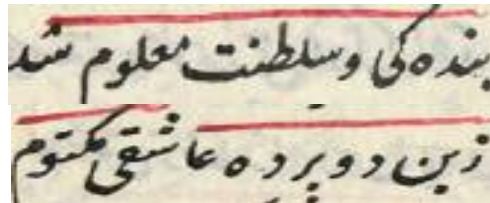 بنده کی و سلطنت معلوم شد
زین دو پرده عاشقی مکتوم